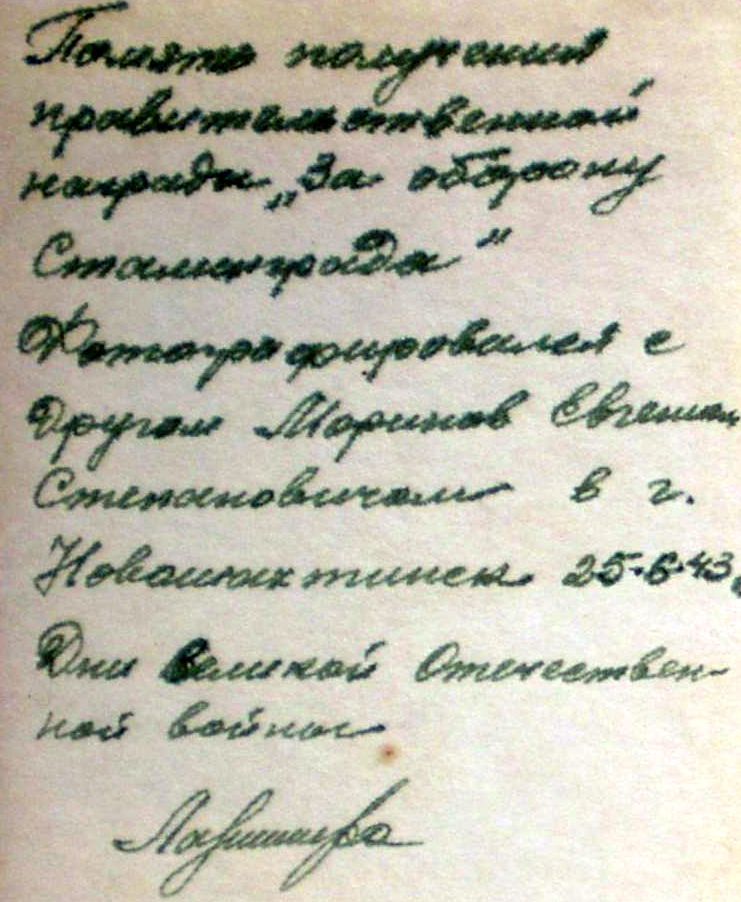 Память получения
правительственной
награды „За оборону
Сталинграда"
Фотографировался с
Другом Маринов Евгением
Степановичем в г.
Новошахтинск 25-6-43
Дни Великой Отечествен-
ной войны